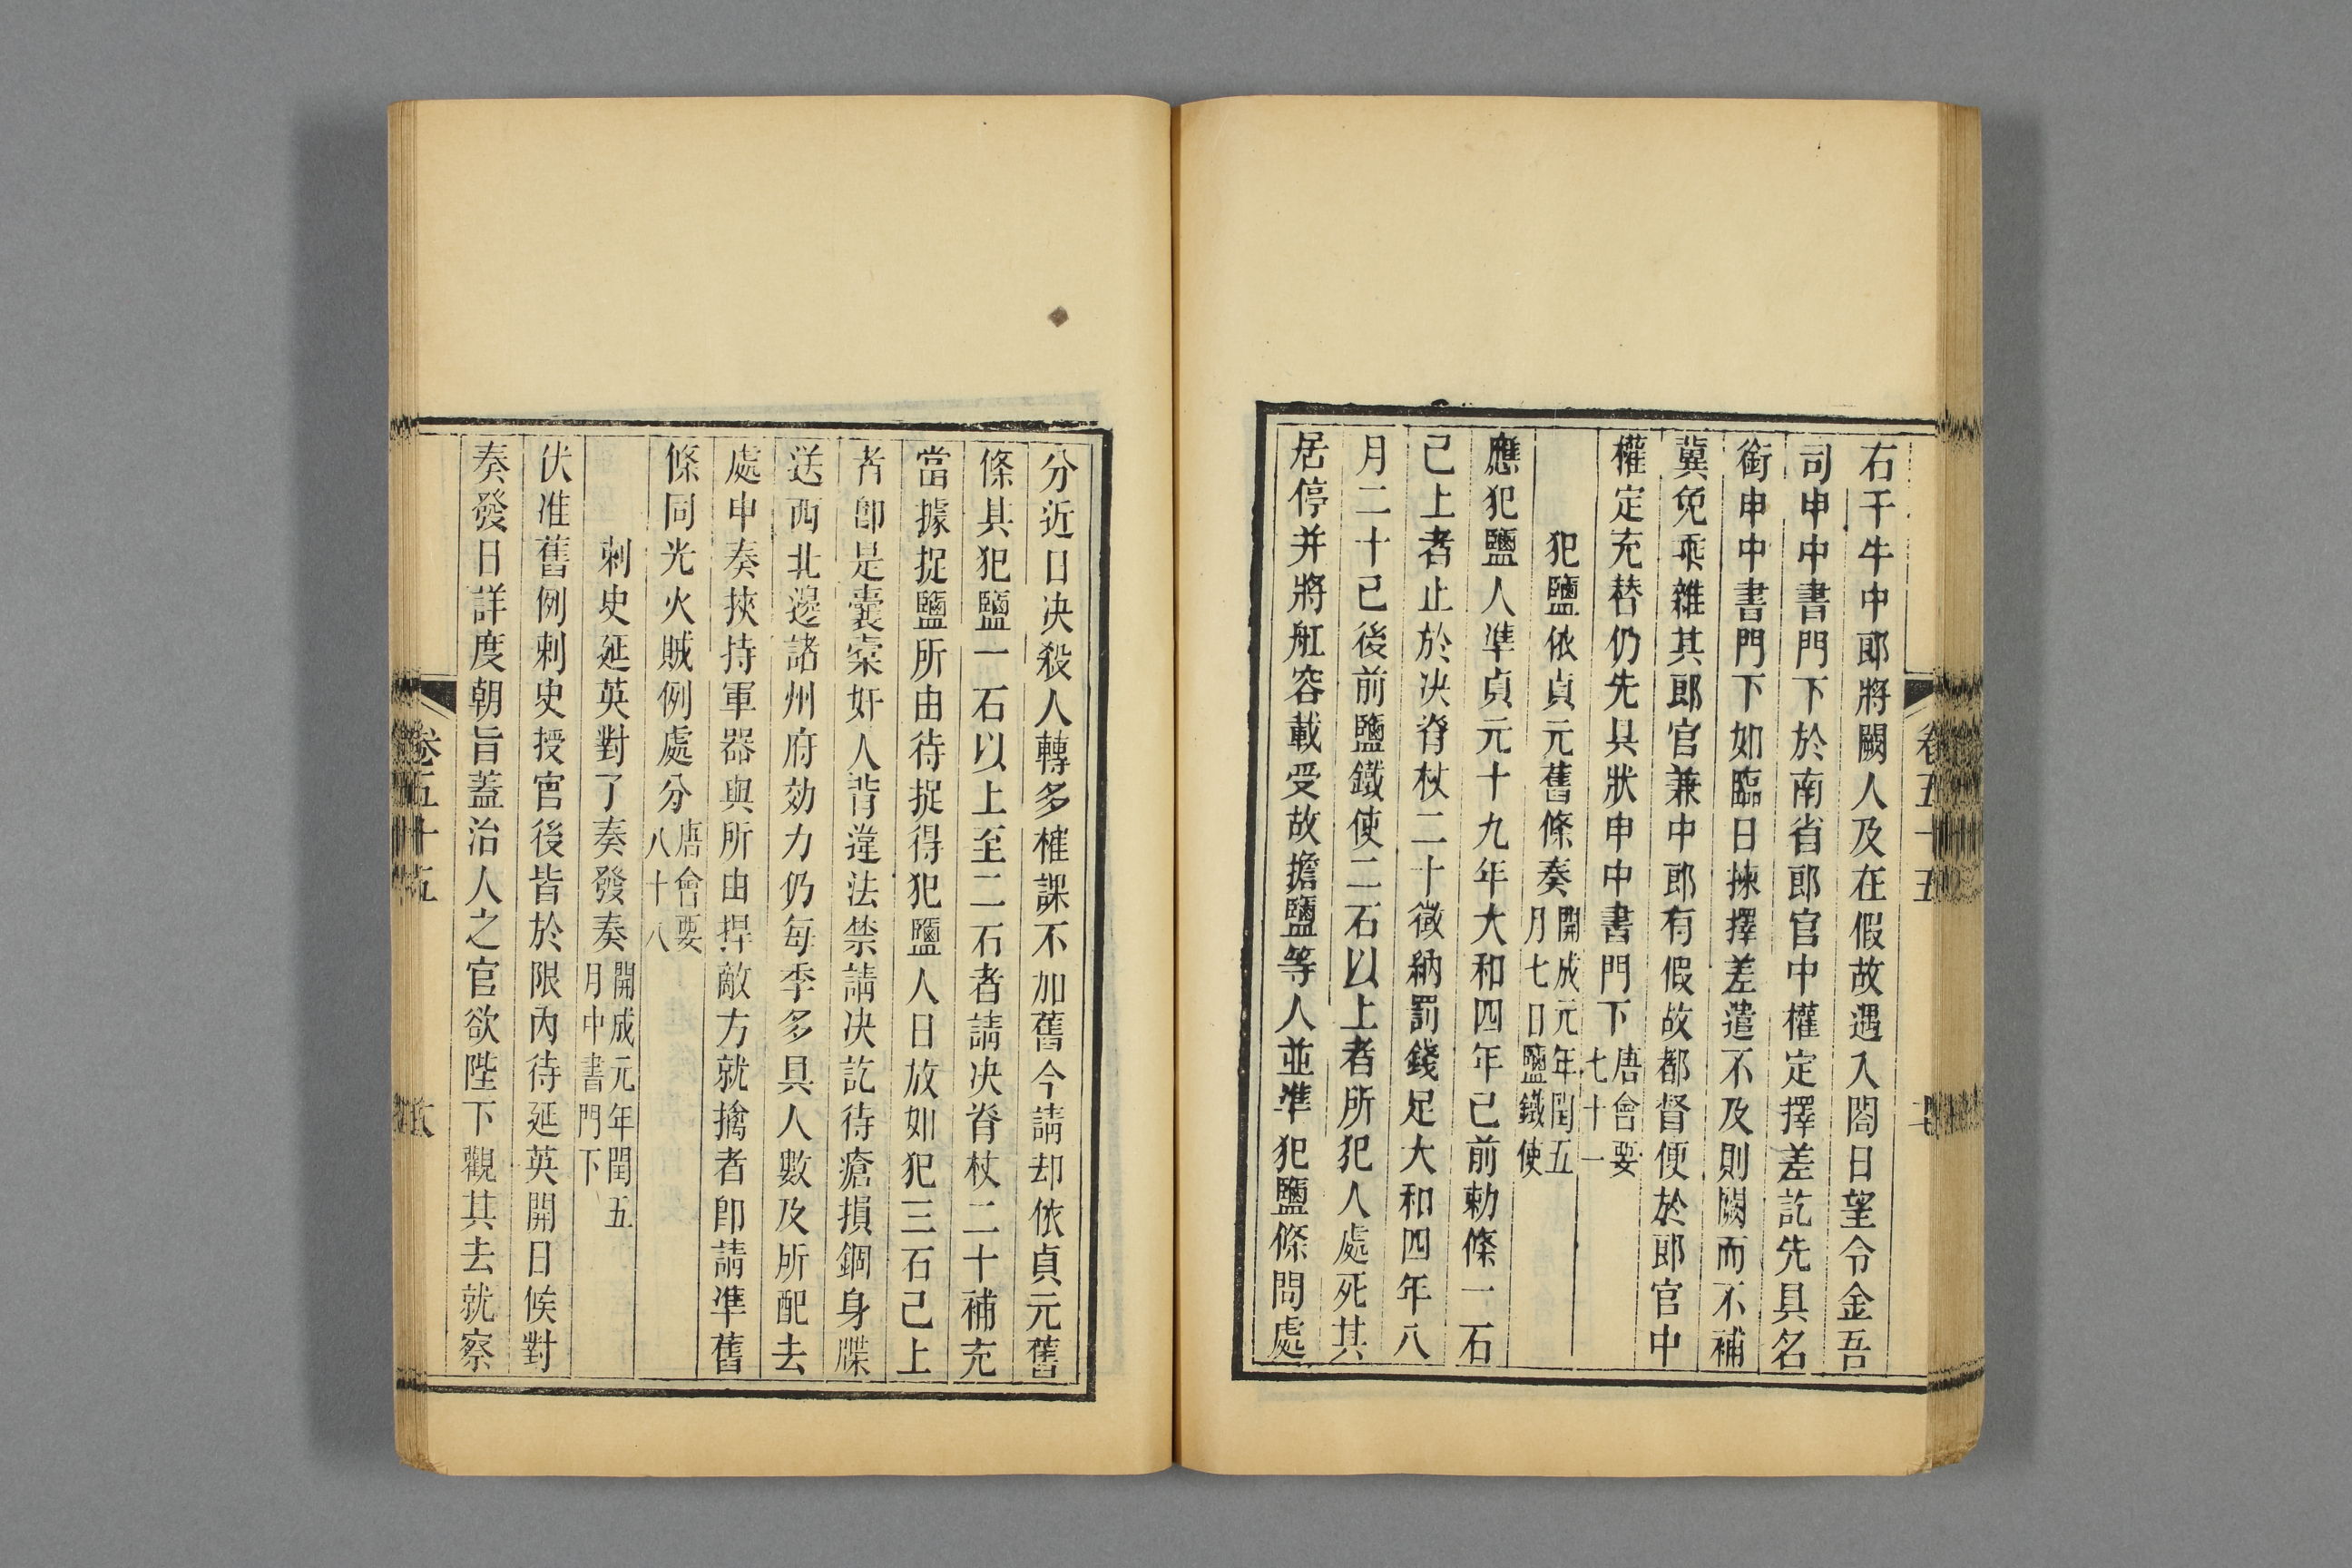 右千牛中郎將闕人及在假故遇入閤日望令金吾
司申中書門下於南省郎官中權定擇差訖先具名
銜申中書門下如臨日揀擇差遣不及則闕而不補
冀免乖雜其郎官兼中郎有假故都督便於郎官中
權定充替仍先具狀申中書門下唐會要七十一
犯鹽依貞元舊條奏開成元年閏五月七日鹽鐵使
應犯鹽人準貞元十九年大和四年已前勅條一石
已上者止於决脊杖二十徵納罰錢足大和四年八
月二十已後前鹽鐵使二石以上者所犯人處死其
居停并將舡容載受故擔鹽等人並準犯鹽條問處
分近日决殺人轉多榷課不加舊今請却依貞元舊
條其犯鹽一石以上至二石者請决脊杖二十補充
當據捉鹽所由待捉得犯鹽人日放如犯三石已上
者卽是囊橐奸人背違法禁請决訖待瘡損錮身牒
送西北邊諸州府効力仍每季多具人數及所配去
處申奏挾持軍器與所由捍敵方就擒者卽請準舊
條同光火賊例處分唐會要八十八
刺史延英對了奏發奏開成元年閏五月中書門下
伏准舊例刺史授官後皆於限內待延英開日候對
奏發日詳度朝旨蓋治人之官欲陛下觀其去就察
卷五十五